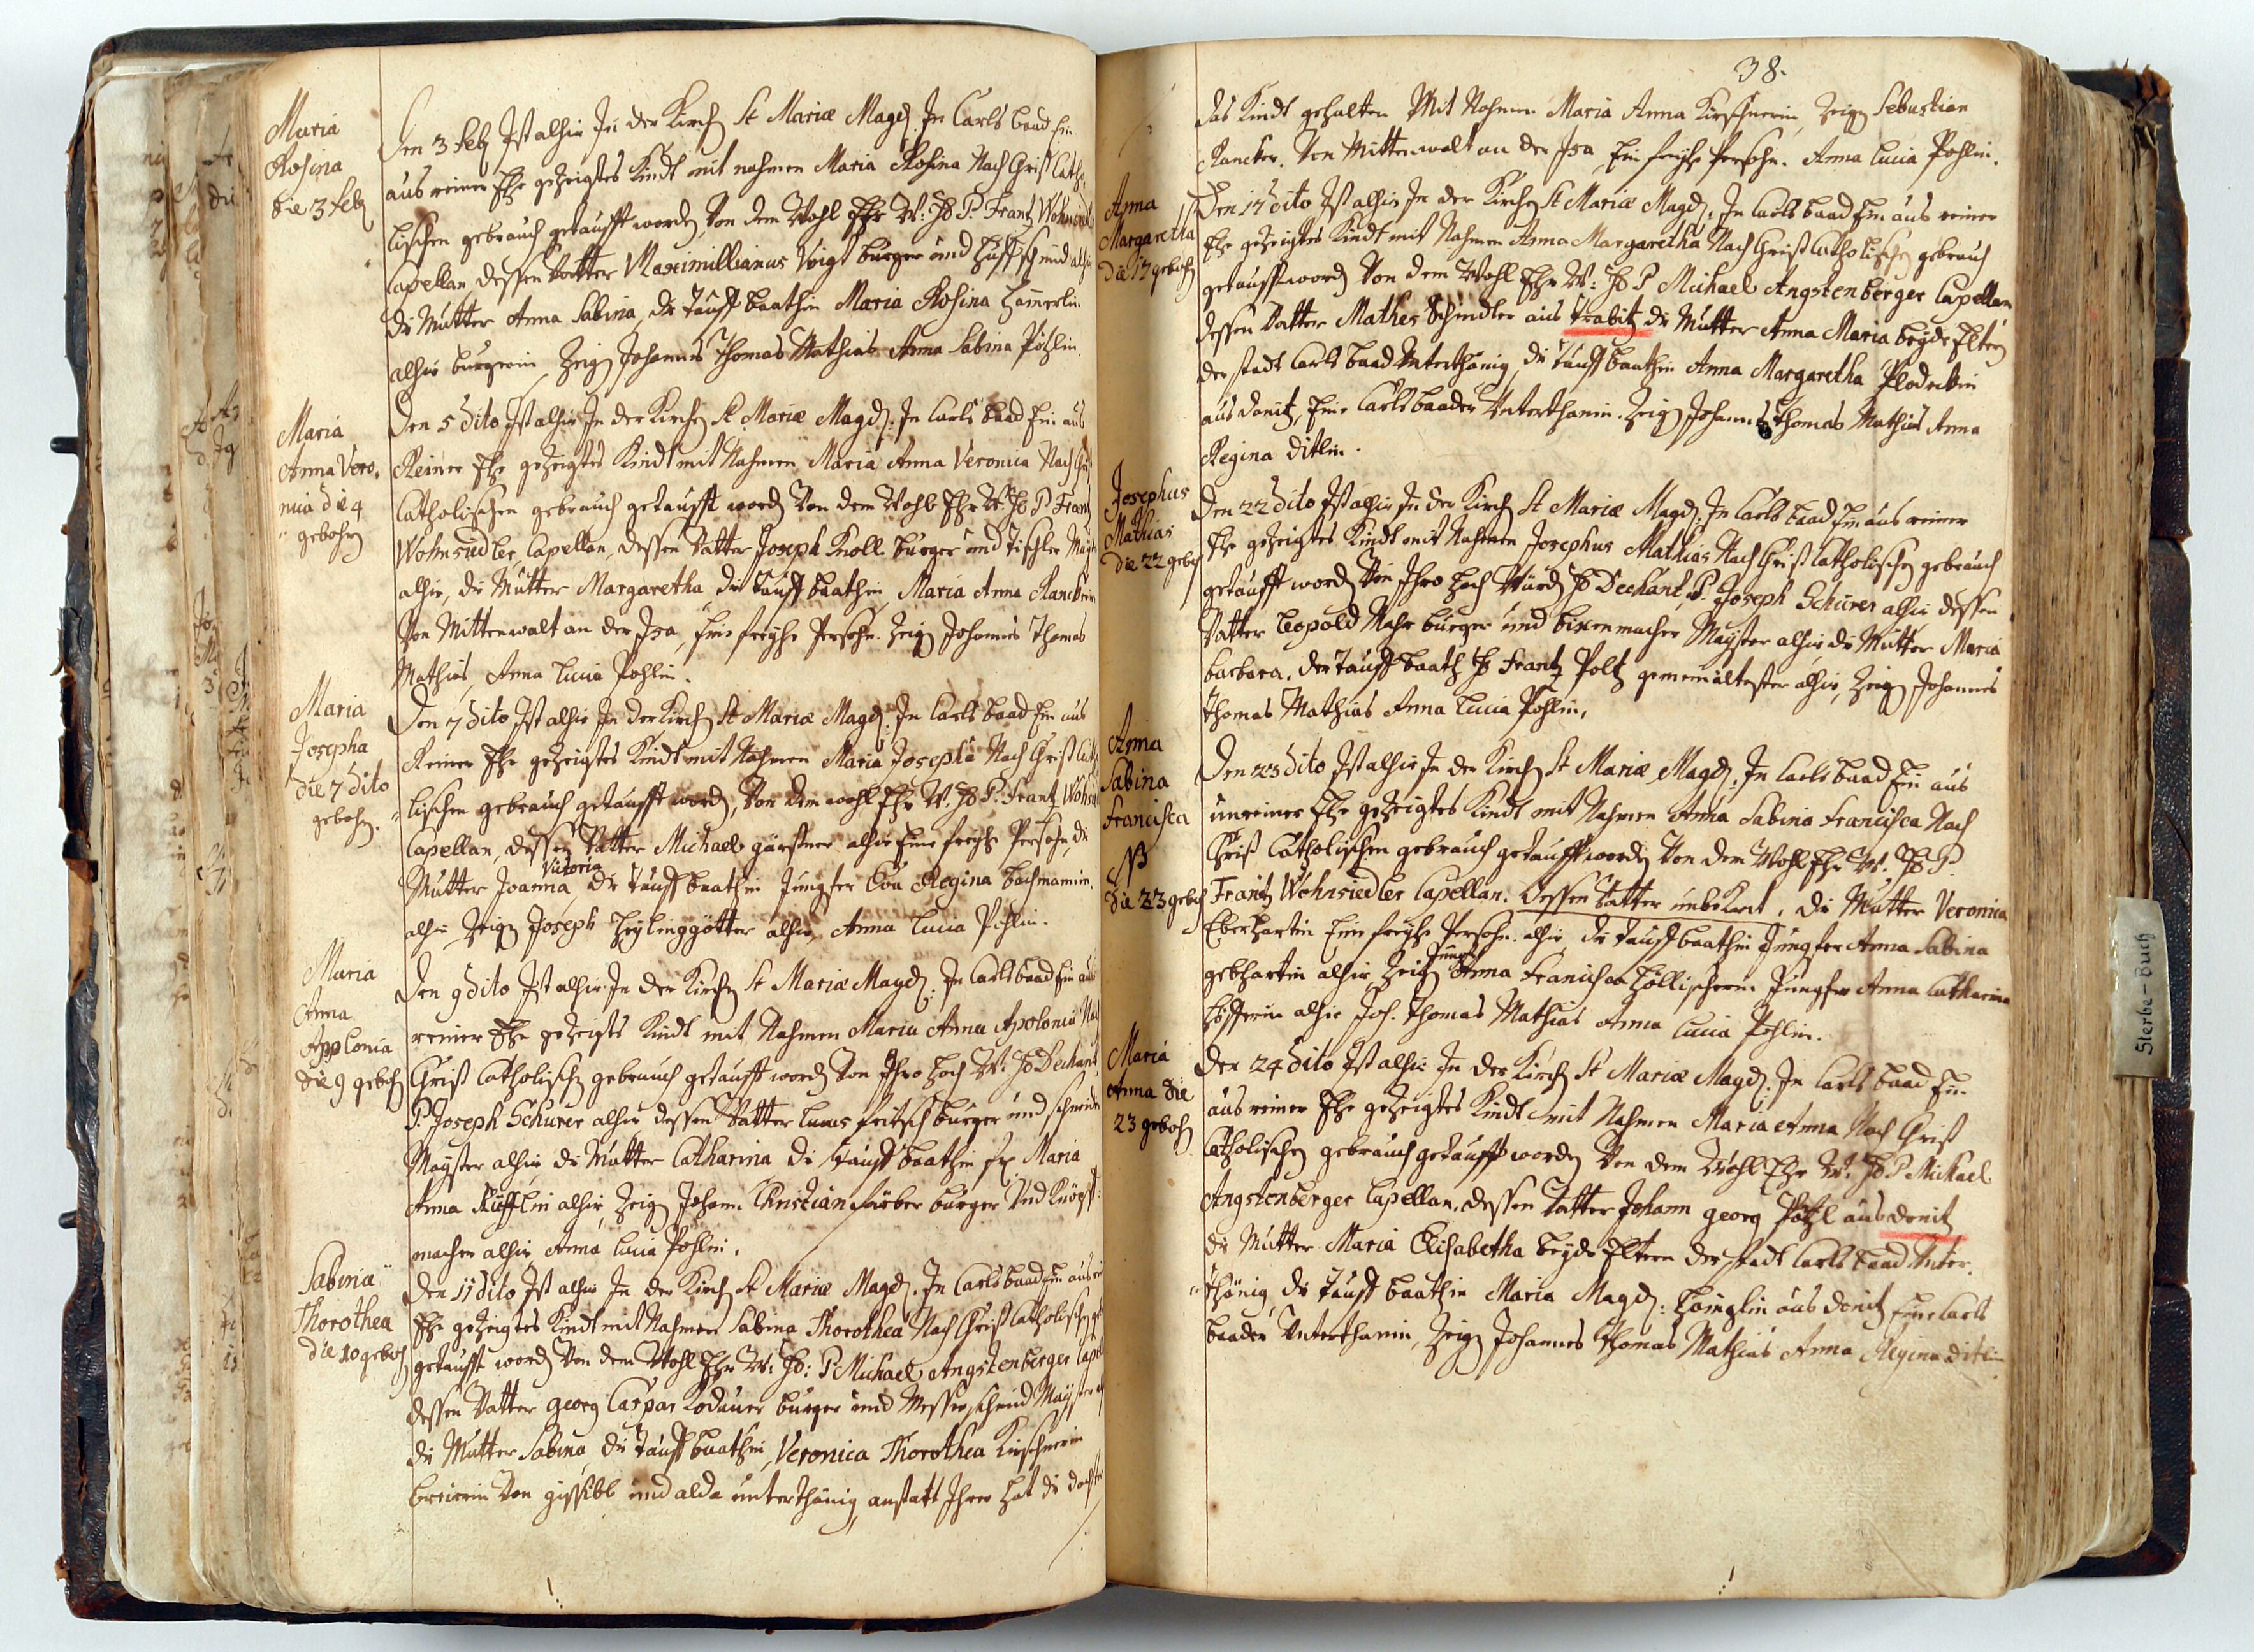 Maria
Rosina
die 3 feb
Den 3 feb Ist alhir In der Kirch St Mariæ Magd. In Carls baad Ein
aus reiner Ehe gezeigtes Kindt mit nahmen Maria Rosina Nach Christ Catho¬
lischen gebrauch getaufft word Von dem Wohl Ehr W: H P: Frantz Wohnsiedl
Capellan dessen Vatter Maximillianus Voigt burger und huffschmid alhir
die Mutter Anna Sabina, die Tauff baathin Maria Rosina
alhir burgerin Zeig Johannes Thomas Mathias Anna Sabina Pötzlin.
Maria
Anna Vero¬
nica die 4
gebohrn
Den 5 dito Ist alhir In der Kirch St Mariæ Magd: In Carls baad Ein aus
Reiner Ehe gezeigtes Kindt mit Nahmen Maria Anna Veronica Nach Christ
Catholischen gebrauch getaufft word Von dem Wohl Ehr W: H P Frantz
Wohnsiedler Capellan, dessen Vatter Joseph Knoll burger und tischler Mayster
alhir, die Mutter Margaretha die Tauff baathin, Maria Anna Ranckerin
Von Mittenwalt an der Isa, Eine freyhe Persohn. Zeig Johannes Thomas
Mathias, Anna Lucia Pohlin.
Maria
Josepha
die 7 dito
gebohrn.
Den 7 dito Ist alhir In der Kirch St Mariæ Magd: In Carls baad Ein aus
Reiner Ehe gezeigtes Kindt mit Nahmen Maria Josepha Nach Christ Catho
lischen gebrauch getaufft word, Von dem wohl Ehr W. H P: Frantz Wohns
Capellan, dessen Vatter Michael gärstner alhir Eine freyhe Persohn, die
Victoria
Mutter Joanna, die Tauff baathin Jungfer Eva Regina bachmannin.
alhir Zeig Joseph Heylinggötter alhir, Anna Lucia Pohlin.
Maria
Anna
Applonia
die 9 gebohrn
Den 9 dito Ist alhir In der Kirch St Mariæ Magd: In Carls baad Ein aus
reiner Ehe gezeigts Kindt mit Nahmen Maria Anna Apolonia Nach
Christ Catholisch gebrauch getaufft word Von Ihro Hoch W. H Dechant
P: Joseph Schurer alhir dessen Vatter Lucas fritsch burger und schneider
Mayster alhir die Mutter Catharina die Tauff baathin fr Maria
Anna alhir Zeig Johann Christian färber burger Und Knöpff¬
macher alhir Anna Lucia Pohlin.
Sabina
Thorothea
die 10 geboh
Den 11 dito Ist alhir In der Kirch St Mariæ Magd. In Carls baad Ein aus rei
Ehe gezeigtes Kindt mit Nahmen Sabina Thorothea Nach Christ Catholisch ge
getaufft word Von dem Wohl Ehr W: H: P Michael Angstenberger Cape
dessen Vatter georg Caspar Kodauer burger und Messerschmid Mayster a
die Mutter Sabina, die Tauff baathin, Veronica Thorothea Kirschnerin
Von gisshübl und alda unterthänig, anstatt Ihrer hat die dochter
38.
das Kindt gehalten Mit Nahmen Maria Anna Kirschnerin, Zeig Sebastian
Rancker. Von Mittenwalt an der Isa, Ein freyhe Persohn. Anna Lucia Pohlin.
Anna
Margaretha
die 17 gebohrn
Den 17 dito Ist alhir In der Kirch St Mariæ Magd. In Carls baad Ein aus reiner
Ehe gezeigtes Kindt mit Nahmen Anna Margaretha Nach Christ Catholisch gebrauch
getaufft word Von dem Wohl Ehr W: H P Michael Angstenberger Capellan
dessen Vatter Mathes Schindler aus trabitz die Mutter Anna Maria beyde Eltern
der stadt Carls baad Unterthänig, die Tauff baathin Anna Margaretha
aus donitz, Eine Carls baader Unterthanin. Zeig Johannes Thomas Mathias Anna
Regina Ditlin.
Josephus
Mathias
die 22 geboh
Den 22 dito Ist alhir In der Kirch St Mariæ Magd. In Carls baad Ein aus reiner
Ehe gezeigtes Kindt mit Nahmen Josephus Mathias Nach Christ Catholisch gebrauch
getaufft word Von Ihro Hoch Würd H Dechant, P. Joseph Schürer alhir dessen
Vatter Leopold Mahr burger und bixenmacher Mayster alhir die Mutter Maria
barbara. der Tauff baath H Frantz Poltz gemeinältester alhir, Zeig Johannes
Thomas Mathias Anna Lucia Pohlin,
Anna
Sabina
Francisca
NB
die 23 geboh
Den 23 dito Ist alhir In der Kirch St Mariæ Magd: In Carls baad Ein aus
unreiner Ehe gezeigtes Kindt mit Nahmen Anna Sabina Francisca Nach
Christ Catholischen gebrauch getaufft word Von dem Wohl Ehr W. H P.
Frantz Wohnsiedler Capellan. dessen Vatter unbekant, die Mutter Veronica
Eberhartin Eine freyhe Persohn alhir die Tauff baathin Jungfer Anna Sabina
Jungfr
gebhartin alhir, Zeig Anna Francisca Jungfer Anna Catharina
alhir Joh. Thomas Mathias Anna Lucia Pohlin.
Maria
Anna die
23 geboh
Den 24 dito Ist alhir In der Kirch St Mariæ Magd: In Carls baad Ein
aus reiner Ehe gezeigtes Kindt mit Nahmen Maria Anna Nach Christ
Catholischen gebrauch getaufft worden Von dem Wohl Ehr W: H P Michael
Angstenberger Capellan. dessen Vatter Johann georg Pötzl aus donitz
die Mutter Maria Elisabetha beyde Eltern der stadt Carls baad Unter¬
thänig, die Tauff baathin Maria Magd: aus donitz Eine Carls
baader Unterthanin, Zeig Johannes Thomas Mathias Anna Regina Ditlin
Sterbe-Buch